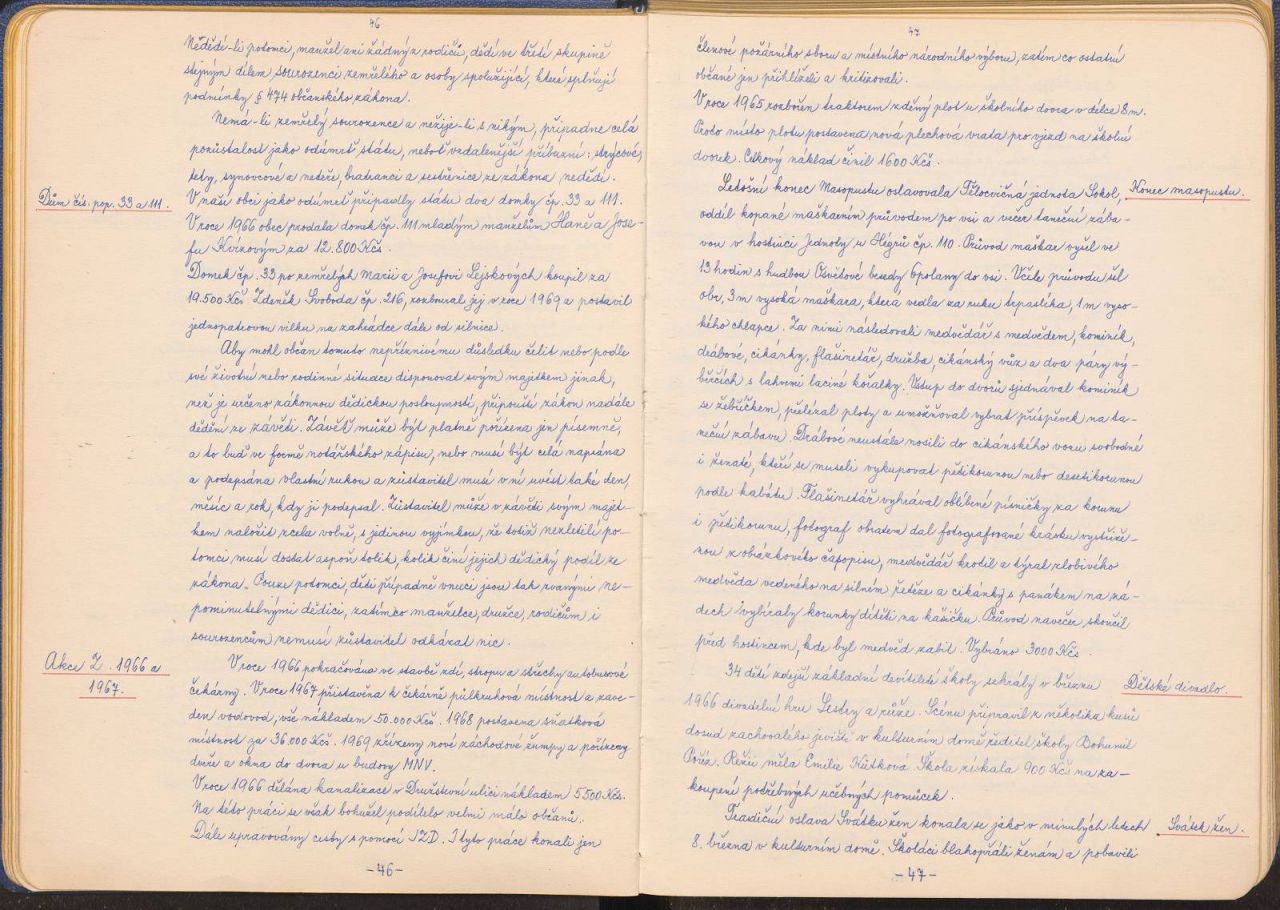 46
Nedědí-li potomci, manžel ani žádný z rodičů, dědí ve třetí skupině
stejným dílem sourozenci zemřelého a osoby spolužijící, které splňují
podmínky § 474 občanského zákona.
Nemá-li zemřelý sourozence a nežije-li s nikým, připadne celá
pozůstalost jako odúmrť státu, neboť vzdálenější příbuzní: strýcové,
tety, synovcové a neteře, bratranci a sestřenice ze zákona nedědí.
Dům čís. pop. 33 a 111.
V naší obci jako odúmrť připadly státu dva domky čp. 33 a 111.
V roce 1966 obec prodala domek čp. 111 mladým manželům Haně a Jose-
fu Kvízovým za 12.800 Kčs.
Domek čp. 33 po zemřelých Marii a Josefovi Lejskových koupil za
19.500 Kčs Zdeněk Svoboda čp. 216, rozboural jej v roce 1969 a postavil
jednopatrovou vilku na zahrádce dále od silnice.
Aby mohl občan tomuto nepříznivému důsledku čelit nebo podle
své životní nebo rodinné situace disponovat svým majetkem jinak,
než je určeno zákonnou dědickou posloupností, připouští zákon nadále
dědění ze závěti. Závěť může být platně pořízena jen písemně,
a to buď ve formě notářského zápisu, nebo musí být celá napsána
a podepsána vlastní rukou a zůstavitel musí v ní uvést také den,
měsíc a rok, kdy ji podepsal. Zůstavitel může v závěti svým majet-
kem naložit zcela volně, s jedinou vyjímkou, že totiž nezletilí po-
tomci musí dostat aspoň tolik, kolik činí jejich dědický podíl ze
zákona. Pouze potomci, děti případně vnuci jsou tak zvanými ne-
pominutelnými dědici, zatímco manželce, družce, rodičům i
sourozencům nemusí zůstavitel odkázat nic.
Akce Z. 1966 a
1967.
V roce 1966 pokračováno ve stavbě zdí, stropu a střechy autobusové
čekárny. V roce 1967 přistavěna k čekárně půlkruhová místnost a zave-
den vodovod, vše nákladem 50.000 Kčs. 1968 postavena sňatková
místnost za 36.000 Kčs. 1969 zřízeny nové záchodové žumpy a pořízeny
dveře a okna do dvora u budovy MNV.
V roce 1966 dělána kanalizace v Družstevní ulici nákladem 5500 Kčs.
Na této práci se však bohužel podílelo velmi málo občanů.
Dále upravovány cesty s pomocí JZD. I tyto práce konali jen
-46-
47
členové požárního sboru a místního národního výboru, zatím co ostatní
občané jen přihlíželi a kritizovali.
V roce 1965 rozbořen traktorem zděný plot u školního dvora v délce 8m.
Proto místo plotu postavena nová plechová vrata pro vjezd na školní
dvorek. Celkový náklad činil 1600 Kčs.
Konec masopustu.
Letošní konec Masopustu oslavovala Tělocvičná jednota Sokol,
oddíl kopané maškarním průvodem po vsi a večer taneční zába-
vou v hostinci Jednoty u Hégrů čp. 110. Průvod maškar vyšel ve
13 hodin s hudbou Osvětové besedy Opolany do vsi. V čele průvodu šel
obr, 3m vysoká maškara, která vedla za ruku trpaslíka, 1m vyso-
kého chlapce. Za nimi následovali medvědář s medvědem, kominík,
drábové, cikánky, flašinetář, družba, cikánský vůz a dva páry vý-
běrčích s lahvemi laciné kořalky. Vstup do dvorů sjednával kominík
se žebříčkem, přelézal ploty a umožňoval vybrat příspěvek na ta-
neční zábavu. Drábové neustále nosili do cikánského vozu svobodné
i ženaté, kteří se museli vykupovat pětikorunou nebo desetikorunou
podle kabátu. Flašinetář vyhrával oblíbené písničky za korunu
i pětikorunu, fotograf obratem dal fotografované krásku vystřiže-
nou z obrázkového časopisu, medvědář krotil a týral zlobivého
medvěda vedeného na silném řetěze a cikánky s panákem na zá-
dech vybíraly korunky dítěti na kašičku. Průvod navečer skončil
před hostincem, kde byl medvěd zabit. Vybráno 3000 Kčs.
Dětské divadlo.
34 dětí zdejší základní devítileté školy sehrály v březnu
1966 divadelní hru Sestry a růže. Scénu připravil z několika kusů
dosud zachovalého jeviště v kulturním domě ředitel školy Bohumil
Režii měla Emilie Kůtková. Škola získala 900 Kčs na za-
koupení potřebných učebných pomůcek.
Svátek žen.
Tradiční oslava Svátku žen konala se jako v minulých letech
8. března v kulturním domě. Školáci blahopřáli ženám a pobavili
-47-